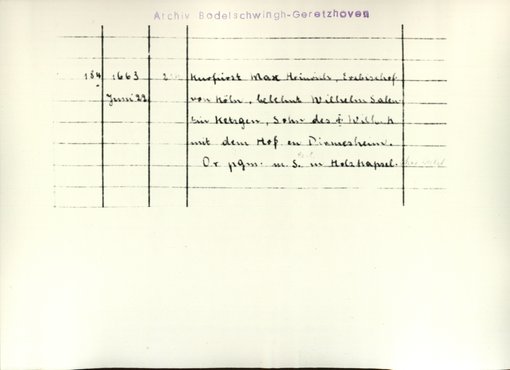 Archiv Bodelschwingh-Geretzhoven
184 1663 Kurfürst Max Heinrich, Erzbischof
Juni 22 von Köln, belehnt Wilhelm Salen
Sohn des † Wilh.
mit dem Hof en Dirmesheim.
Or. pgm. m. S. in Holzkapsel.